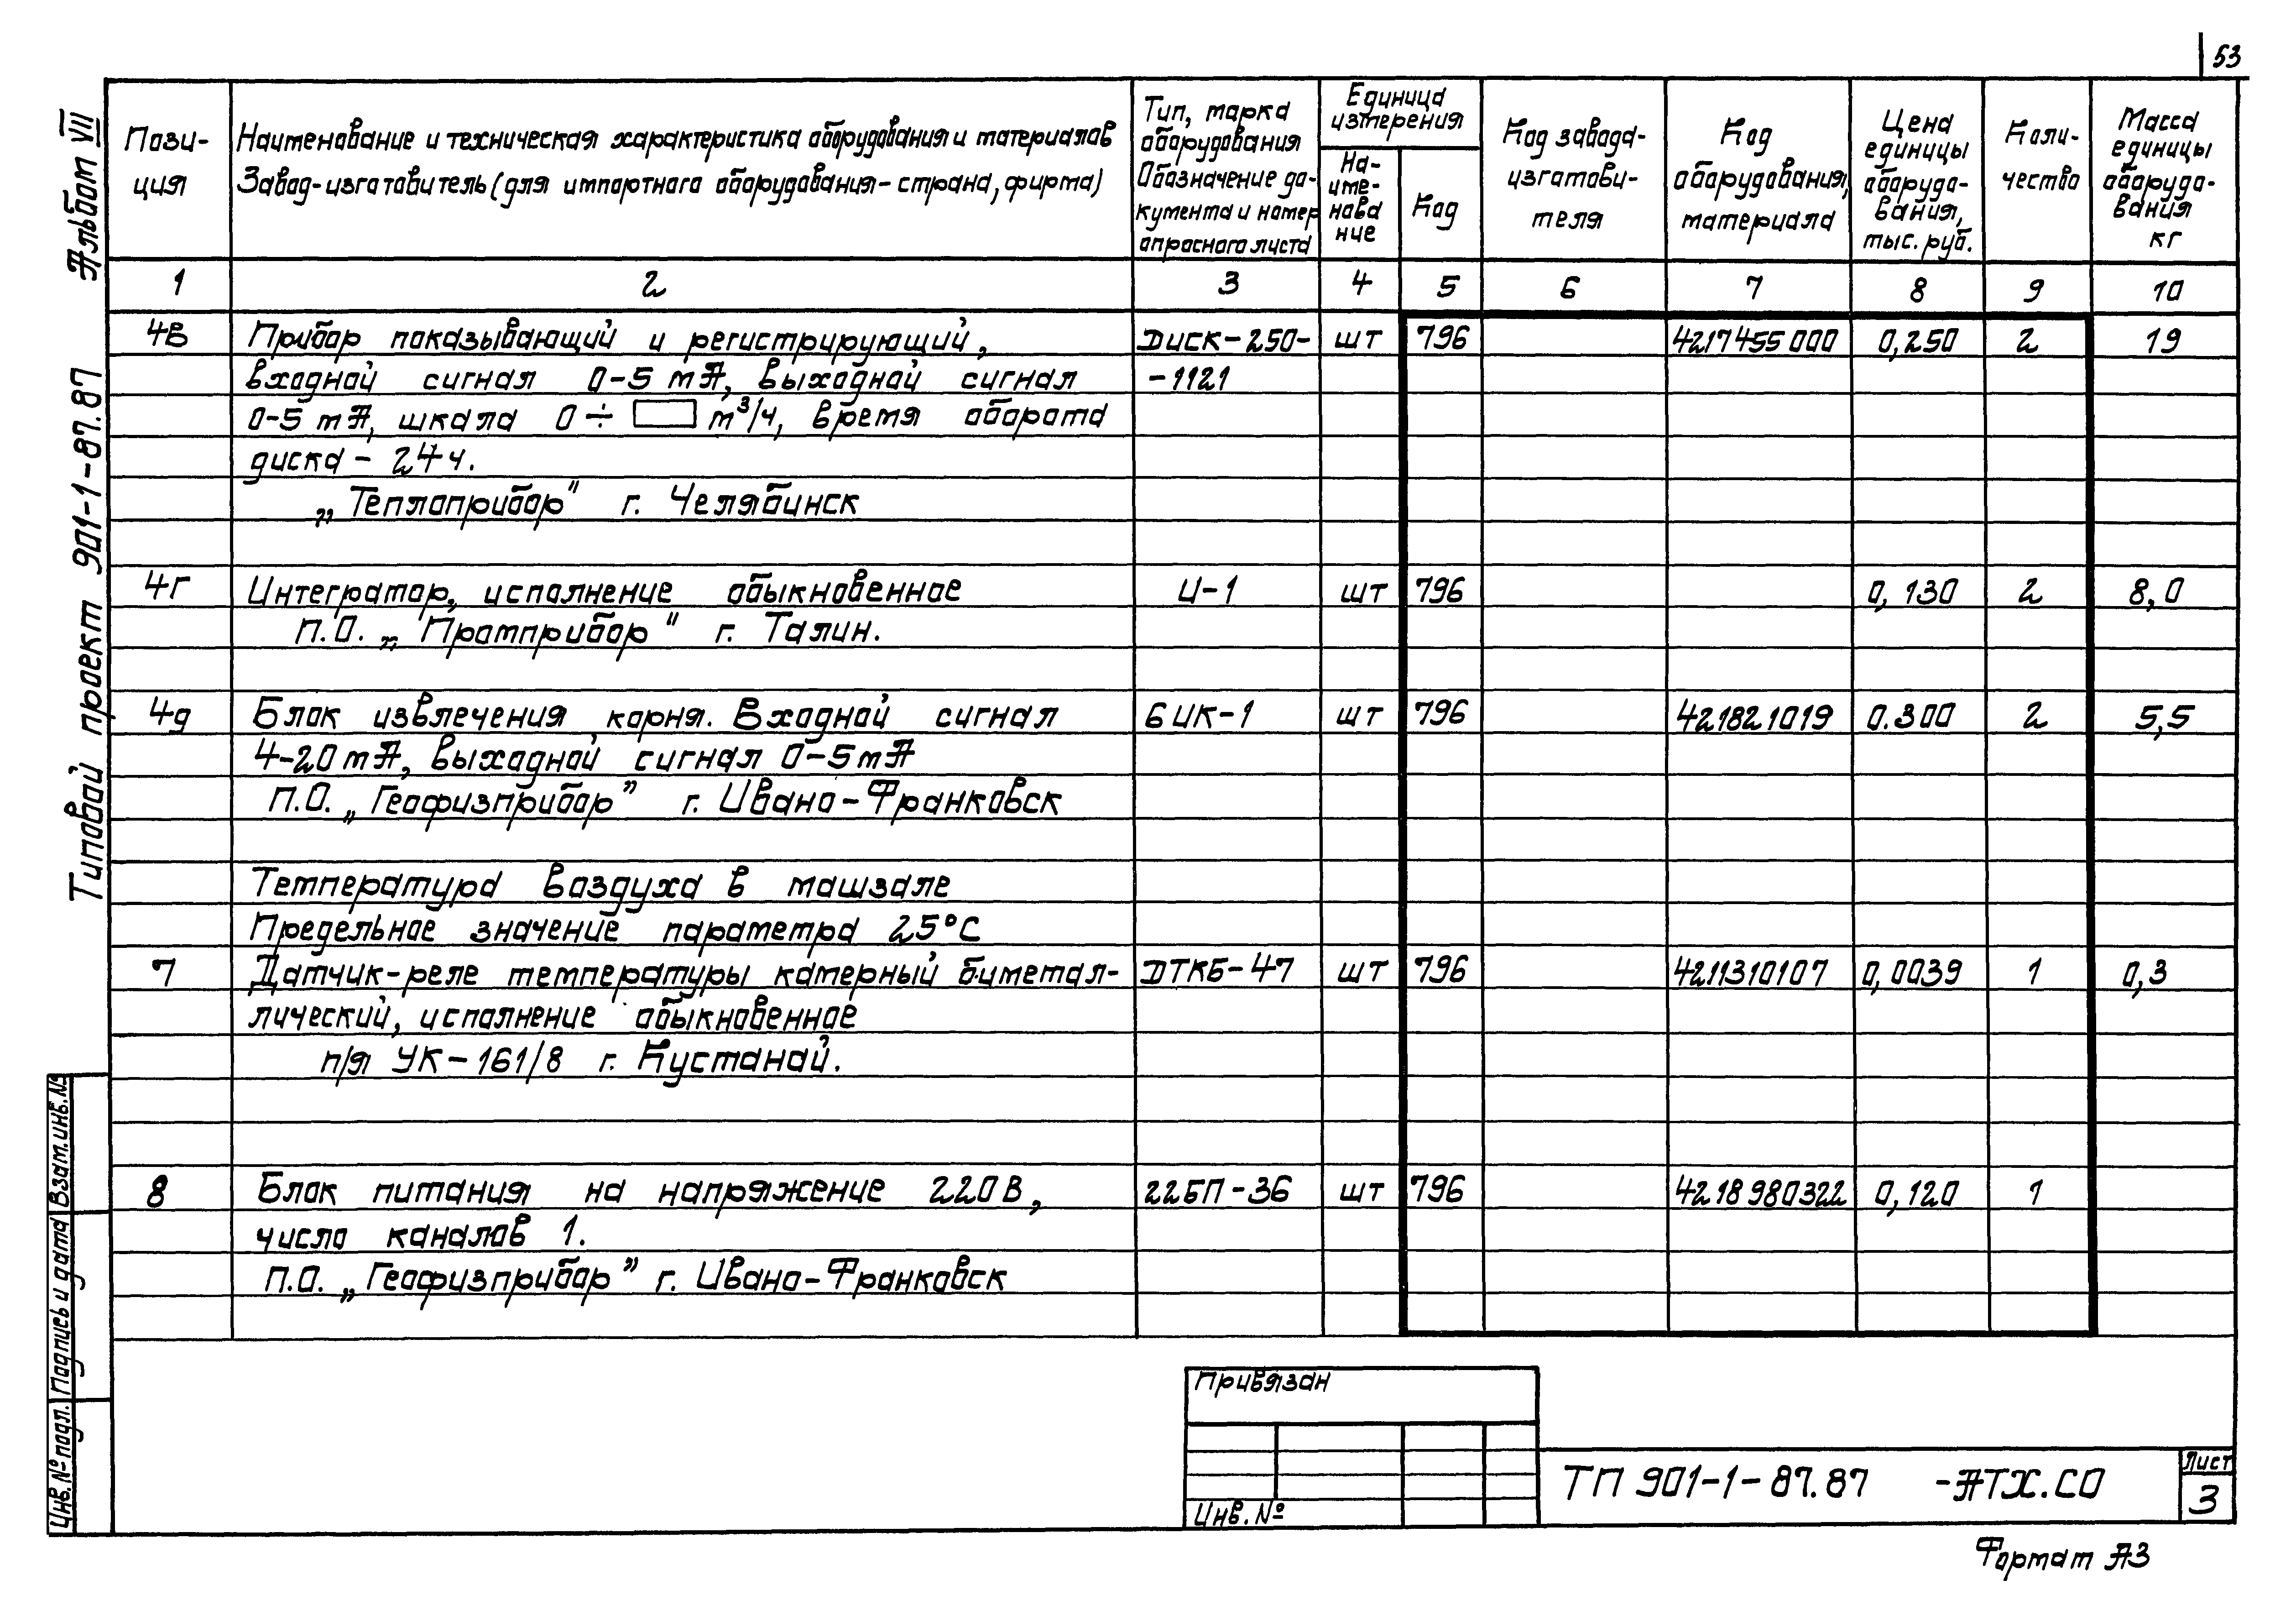 53
Альбом VII
Типовой проект 901-1-87.87
Пози-
ция
Наименование и техническая характеристика оборудования и материалов
Завод-изготовитель (для импортного оборудования-страна, фирма)
Тип, марка
оборудования
Обозначение до-
кумента и номер
опросного листа
Единица
измерения
На-
име-
нова
ние
Код
Код завода-
изготови-
теля
Код
оборудования,
материала
Цена
единицы
оборудо-
вания,
тыс. руб.
Коли-
чество
Масса
единицы
оборудо-
вания
кг
1 2 3 4 5 6 7 8 9 10
4в Прибор показывающий и регистрирующий, Диск-250- шт 796 4217455000 0,250 2 19
входной сигнал 0-5 мА, выходной сигнал -1121
0-5 мА, шкала 0÷ м³/ч, время оборота
диска - 24ч.
„Теплоприбор" г. Челябинск
4г Интегратор, исполнение обыкновенное И-1 шт 796 0,130 2 8,0
П.О. „Промприбор" г. Талин.
4д Блок извлечения корня. Входной сигнал БИК-1 шт 796 421821019 0.300 2 5,5
4-20мА, выходной сигнал 0-5мА
П.О. „Геофизприбор" г. Ивано-Франковск
Температура воздуха в машзале
Предельное значение параметра 25°С
7 Датчик-реле температуры камерный биметал- ДТКБ-47 шт 796 4211310107 0,0039 1 0,3
лический, исполнение обыкновенное
п/я УК-161/8 г. Кустанай.
8 Блок питания на напряжение 220В, 22БП-36 шт 796 4218980322 0,120 1
число каналов 1.
П.О. „Геофизприбор" г. Ивано-Франковск
Взам.инв.№
Подпись и дата
Инв.№ подл.
Привязан
Инв. №
ТП 901-1-87.87 -АТХ.СО
Лист
3
Формат А3